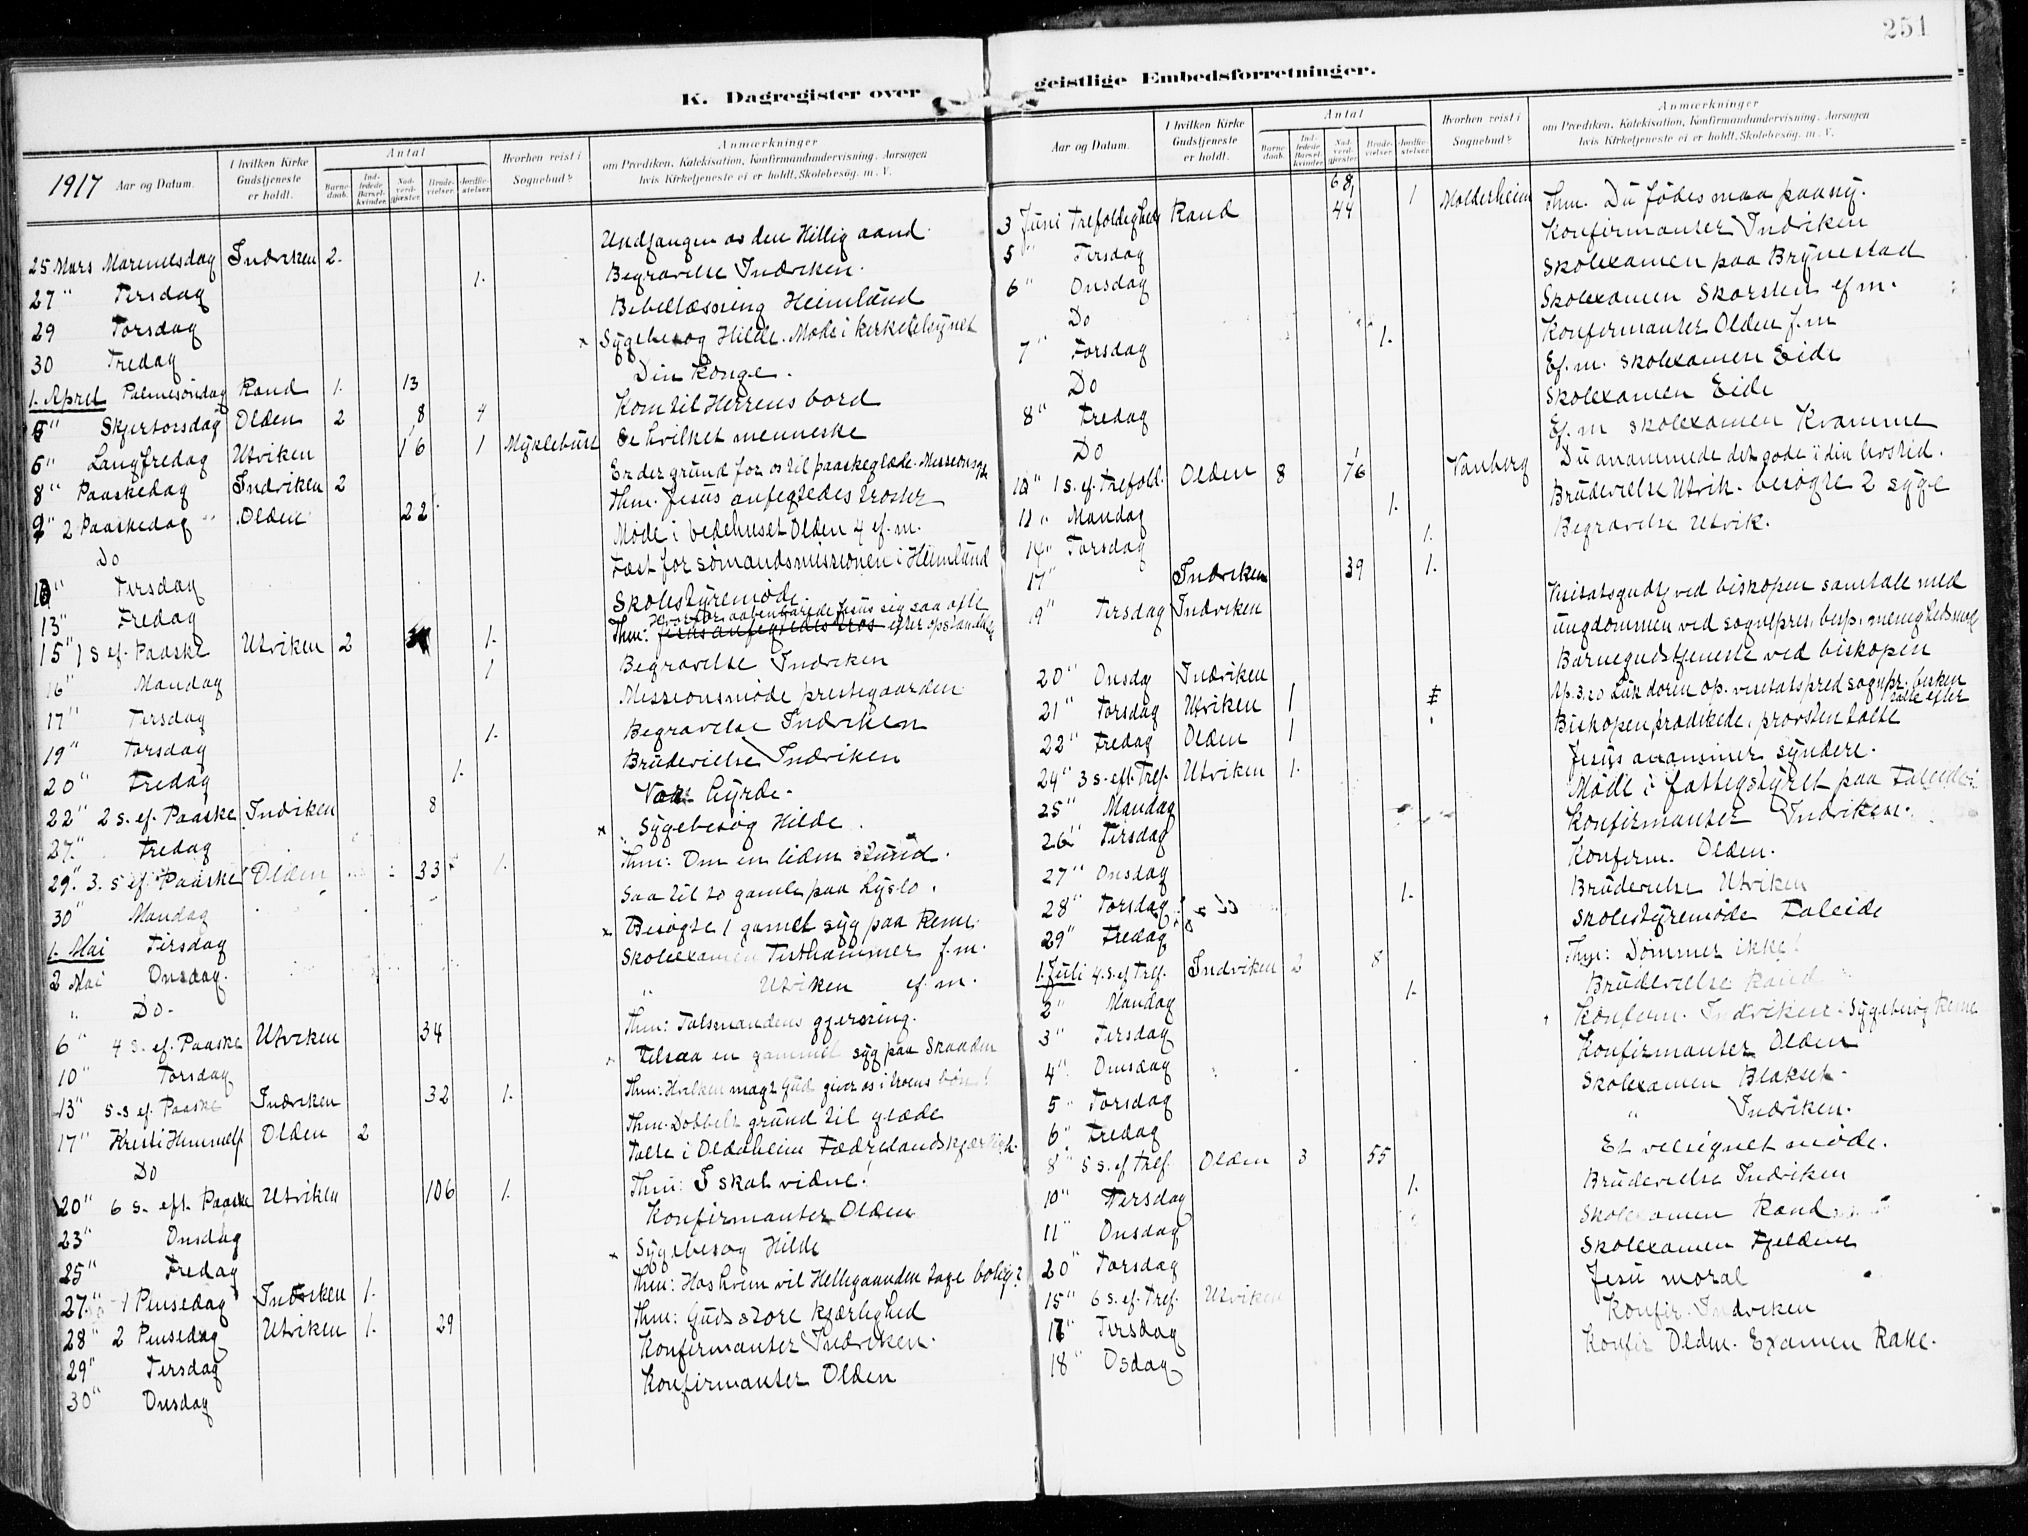 251
K. Dagregister over geistlige Embedsforretninger.
1917 Aar og Datum.
I hvilken Kirke Gudstjeneste er holdt.
Antal
Barnedaab.
Indledede Barselkvinder.
Nadverdgjæster.
Brudevielser.
Jordfæstelser.
Hvorhen reist i Sognebud?
Anmærkninger
om Prædiken, Katekisation, Konfirmandundervisning, Aarsagen
hvis Kirketjeneste ei er holdt, Skolebesøg. m. V.
25 Mars Mariemesdag Indviken 2. Undfangen av den Hellig aand.
27 " Tirsdag 1. Begravelse Indviken.
29 Torsdag Bibellæsning Heimlund
30 Fredag x Sygebesøg Hilde. Møde i kirketilsynet
1. April Palmesøndag Rand 1. 13 Din Konge.
5 " Skjertorsdag Olden 2 8 4 Kom til Herrens bord
6 " Langfredag Utviken 16 1 Myklebust Se hvilket menneske
8 " Paaskedag Indviken 2 Er der grund for os til paaskeglæde.
9 " 2 Paaskedag Olden 22 Thm. Jesus anfegtedes trøster
Do Møde i bedehuset Olden 4 ef. m.
10 " Tirsdag Fest for sømandsmissionen i Heimlund
13 " Fredag Skolestyremøde.
15 " 1 S ef. Paaske Utviken 2 1. Thm: Hvorfor aabenbarede Jesus sig saa ofte efter opstandelse
16 " Mandag 1 Begravelse Indviken
17 " Tirsdag Missionsmøde prestegaarden
19 " Torsdag 1. Begravelse Indviken
20 " Fredag 1. Brudevielse Indviken
22 " 2 s. ef. Paaske Indviken 8 Vor hyrde.
27. " Fredag x Sygebesøg Hilde.
29. " 3. s ef. Paaske Olden 33 1. Thm: Om en liden stund.
30 " Mandag Saa til 20 gamle paa Lyslo.
1. Mai Tirsdag x Besøgte 1 gamel syg paa Reme.
2 Mai Onsdag. Skoleexamen Tisthammer f. m.
" Do. " Utviken ef. m.
6 " 4 S. ef. Paaske Utviken 34 Thm: Talsmandens gjerning.
10 " Torsdag x Tilsaa en gammel syg paa Skaaden
13 " 5 s ef. Paaske Indviken 32 1. Thm: Hvilken magt Gud giver os i troens bøn!
17 " Kristi Himmelf Olden 2 Thm. Dobbelt grund til glæde
Do Talte i Oldeheim Fædrelandskjærligh.
20 " 6 s. eft. Paaske Utviken 106 1. Thm: I skal vidne!
23 " Onsdag Konfirmanter Olden
25 " Fredag x Sygebesøg Hilde
27. " 1 Pinsedag Indviken 1. Thm: Hos hvem vil Helligaanden tage bolig?
28 " 2 Pinsedag Utviken 1. 29 Thm: Guds store kjærlighed
29 " Tirsdag Konfirmanter Indviken.
30 " Onsdag Konfirmanter Olden
Aar og Datum.
I hvilken Kirke Gudstjeneste er holdt.
Antal
Barnedaab.
Indledede Barselkvinder.
Nadverdgjæster.
Brudevielser.
Jordfæstelser.
Hvorhen reist i Sognebud?
Anmærkninger
om Prædiken, Katekisation, Konfirmandundervisning, Aarsagen
hvis Kirketjeneste ei er holdt, Skolebesøg. m. V.
3 Juni Trefoldighed Rand 68 44 1 Molderheim Thm. Du fødes maa paany.
5 " Tirsdag Konfirmanter Indviken
6 " Onsdag Skolexamen paa Brynestad
Do Skolexamen Skarsten ef m.
7 " Torsdag 1. Konfirmanter Olden f. m
Do Ef. m. skolexamen Eide
8 " Fredag Skolexamen Eide
Do Ef. m skolexamen Kvamme
10 " 1 s. ef. Trefold. Olden 8 76 Vanberg Du anammede det gode i din livstid.
11 " Mandag 1. Brudevielse Utvik. besøgte 2 syge
14 " Torsdag 1. Begravelse Utvik.
17 " Indviken 39 1.
19 " Tirsdag Indviken Visitatsgudtj ved biskopen samtale med
ungdommen ved sognepres,
20 " Onsdag Indviken Barnegudstjeneste ved biskopen
21 " Torsdag Utviken 1 Ap. 3.20 Luk døren op.
22 " Fredag Olden 1 Biskopen prædikede, provsten talte
24 " 3 s. eft. Tref. Utviken 1. Jesus anammer syndere.
25 " Mandag Møde i fattigstyret paa Faleide.
26 " Tirsdag Konfirmanter Indviken.
27 " Onsdag Konfirm. Olden.
28 " Torsdag 1. Brudevielse Utviken
29 " Fredag Skolestyremøde Faleide
1. Juli 4. s. ef Tref. Indviken 2 8 Thm: Dømmer ikke!
2 " Mandag 1. Brudevielse Rand
3 " Tirsdag Konferm. Indviken. Sygebesøg Reme
4 " Onsdag Konfirmanter Olden
5 " Torsdag Skolexamen Blakset.
6 " Fredag " Indviken.
8 " 5 s. ef Tref. Olden 3 55 Et velsignet møde.
10 " Tirsdag 1. Brudevielse Indviken
11 " Onsdag Skolexamen Rand
20 " Torsdag Skolexamen Fjeldene
15 " 6 s. ef. Tref. Utviken Jesu moral
17 " Tirsdag Konfir. Indviken
18 " Osdag Konfir Olden. Examen Rake.